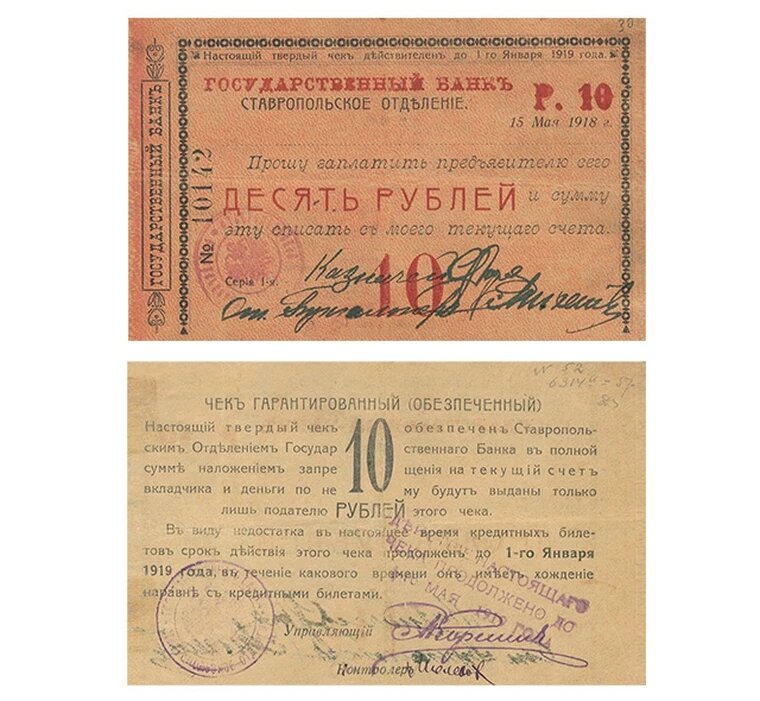 30
Настоящій твердый чекъ дѣйствителенъ до 1-го Января 1919 года.
ГОСУДАРСТВЕННЫЙ БАНКЪ
ГОСУДАРСТВЕННЫЙ БАНКЪ
СТАВРОПОЛЬСКОЕ ОТДѢЛЕНІЕ.
Р. 10
15 Мая 1918 г.
№ 10142
Прошу заплатить предъявителю сего
ДЕСЯТЬ РУБЛЕЙ и сумму
эту списать съ моего текущаго счета.
Серія 1-я.
10
Казначей
Ст. Бухгалтеръ
N 52
ЧЕКЪ ГАРАНТИРОВАННЫЙ (ОБЕЗПЕЧЕННЫЙ)
Настоящій твердый чекъ обезпеченъ Ставрополь-
скимъ Отдѣленіемъ Государ 10 ственнаго Банка въ полной
суммѣ наложеніемъ запре щенія на текущій счетъ
вкладчика и деньги по не му будутъ выданы только
лишь подателю РУБЛЕЙ этого чека.
Въ виду недостатка въ настоящее время кредитныхъ биле-
товъ срокъ дѣйствія этого чека продолженъ до 1-го Января
1919 года, въ теченіе какового времени онъ имѣетъ хожденіе
наравнѣ съ кредитными билетами.
НАСТОЯЩАГО
ЧЕКА ПРОДОЛЖЕНО ДО
МАЯ 1919 ГОДА
Управляющій
Контролеръ